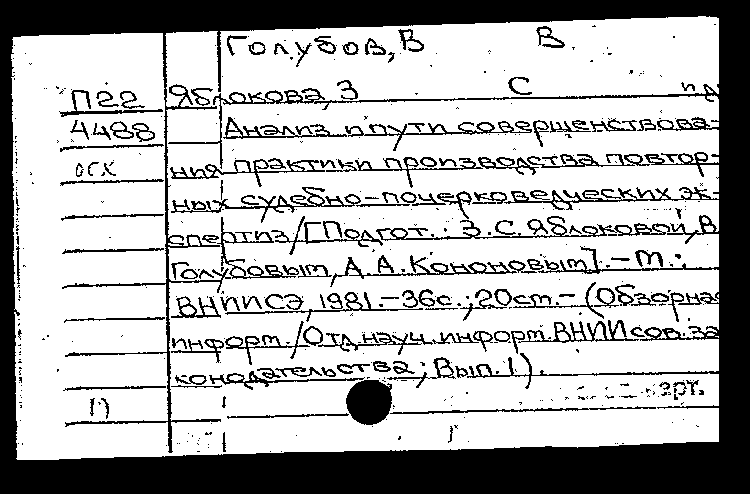 Голубов, В В
П22 Яблокова, З С
4488 Анализ и пути совершенствова-
осх ния практики производства повтор-
ных судебно-почерковедческих эк-
спертиз/[Подгот.: З.С. Яблоковой, В
Голубовым, А.А. Кононовым].-М.:
ВНИИСЭ, 1981.-36с.; 20см.-(Обзорная
информ./Отд. науч. информ. ВНИИ сов. за-
конодательства; Вып. 1).